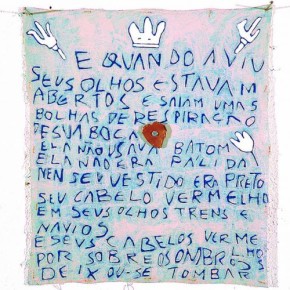 E QUANDO A VIU
SEUS OLHOS ESTAVAM
ABERTOS E SAIAM UMAS
BOLHAS DE RESPIRAÇÃO
DE SUA BOCA
ELA NÃO USAVA BATOM
ELA NÃO ERA PALIDA
NEN SEU VESTIDO ERA PRETO
SEU CABELO VERMELHO
EM SEUS OLHOS TRENS E
NAVIOS
E SEUS CABELOS VERME
POR SOBRE OS OMBROS
DEIXOU-SE TOMBAR